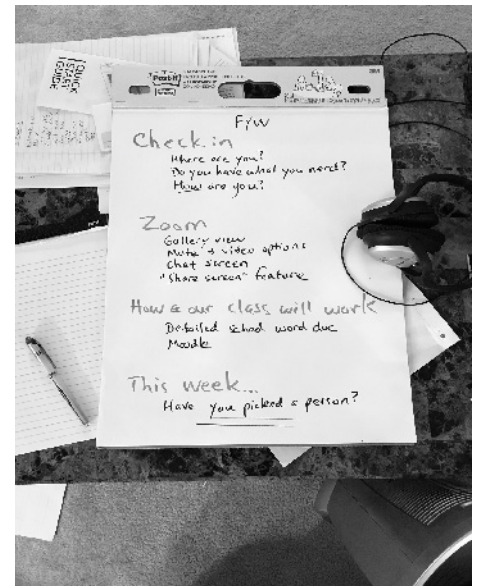 QUICK
START
GUIDE
Post-it
3M
FYW
Check-in
Where are you?
Do you have what you need?
How are you?
Zoom
Gallery view
Mute + video options
Chat screen
"Share screen" feature
How our class will work
Detailed word doc
Moodle
This week...
Have you picked a person?